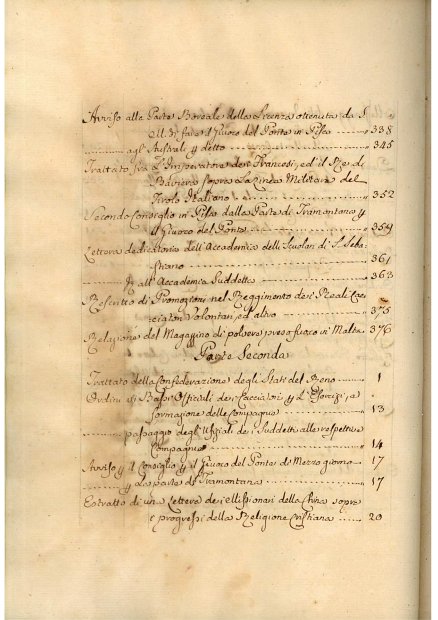 Avviso alla Parte Boreale della Licenza ottenuta da S.
ell. di fare il Giuoco del Ponte in Pisa ........ 338
........ agl' Australi y detto ........ 345
Trattato fra L'Imperatore dei Francesi, ed il Re di
Baviera sopra La Linea Militare del
Tirolo Italiano ........ 352
Secondo Consiglio in Pisa dalla Parte di Tramontana y
il Giuoco del Ponte ........ 359
Lettera dedicatoria dell'Accademia delli Scolari di S. Seba-
stiano ........ 361
........ all'Accademia Suddetta ........ 363
Rescritto di Promozioni nel Reggimento dei Reali Cac-
ciatori Volontari, ed altro ........ 375
Relazione del Magazzino di polvere preso fuoco in Malta 376
Parte Seconda
Trattato della Confederazione degli Stati del Reno ........ 1
Ordini ai Bassi Officiali dei Cacciatori, y L'Esercizi, e
formazione delle Compagnie ........ 13
........ passaggio degl'Uffiziali dei Suddetti alle respettive
Compagnie ........ 14
Avviso y il Consiglio y il Giuoco del Ponte di Mezzogiorno ........ 17
........ y La parte di Tramontana ........ 17
Estratto di una Lettera dei Missionari della China sopra
i progressi della Religione Cristiana ........ 20